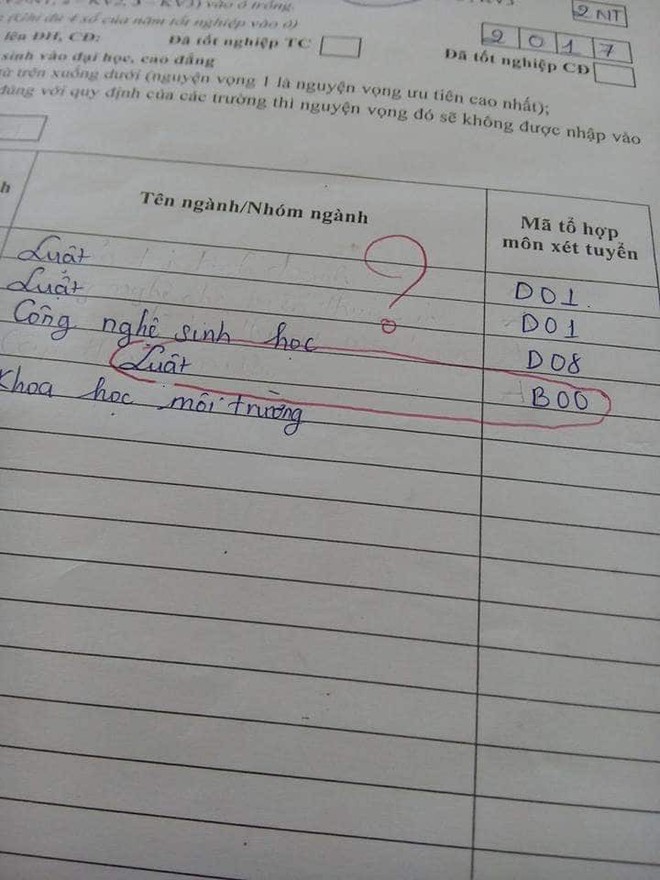 KV2, 3 - KV3) vào ô trống.
(Ghi đủ 4 số của năm tốt nghiệp vào ô)
2NT
2017
lên ĐH, CĐ:
Đã tốt nghiệp TC
Đã tốt nghiệp CĐ
sinh vào đại học, cao đẳng
từ trên xuống dưới (nguyện vọng 1 là nguyện vọng ưu tiên cao nhất);
đúng với quy định của các trường thì nguyện vọng đó sẽ không được nhập vào
h
Tên ngành/Nhóm ngành
Mã tổ hợp
môn xét tuyển
Luật
D01.
Luật
D01
Công nghệ sinh học
D08
Luật
B00
Khoa học môi trường
?